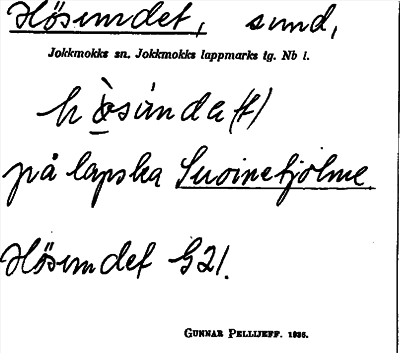 Hösundet, sund,
Jokkmokks sn. Jokkmokks lappmarks tg. Nb l.
hö̀súnde(t)
på lapska Suoinetjolme
Hösundet G21.
GUNNAR PELLIJEFF. 1936.